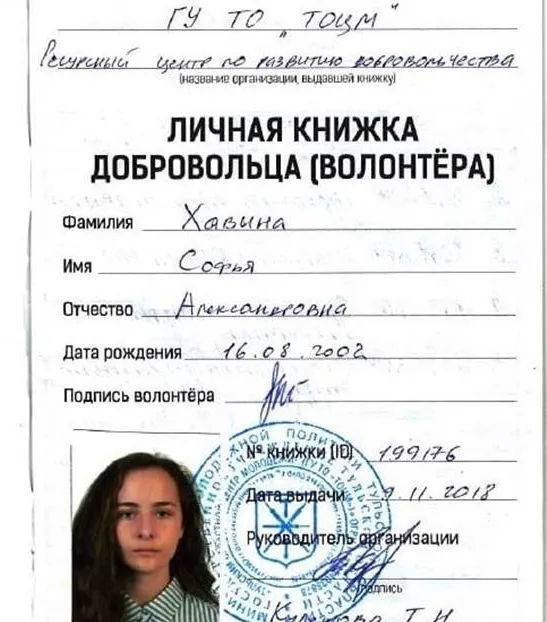 ГУ ТО "ТОЦМ"
Ресурсный центр по развитию добровольчества
(название организации, выдавшей книжку)
ЛИЧНАЯ КНИЖКА
ДОБРОВОЛЬЦА (ВОЛОНТЁРА)
Фамилия Хавина
Имя Софья
Отчество Александровна
Дата рождения 16.08.2002
Подпись волонтёра
№ книжки (ID) 199176
Дата выдачи 9.11.2018
Руководитель организации
подпись
Т. Н.